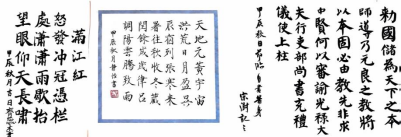 滿江紅
怒發冲冠憑欄
處瀟瀟雨歇抬
望眼仰天長嘯
甲辰秋月吉日
天地元黃宇宙
洪荒日月盈昃
辰宿列張寒來
暑往秋收冬藏
閏餘成歲律呂
調陽雲騰致雨
甲辰秋月
勅國儲為天下之本
師導乃元良之教將
以本固必由教先非求
中賢何以審諭光祿大
夫行吏部尚書充禮
儀使上柱
甲辰秋日節臨自書告身